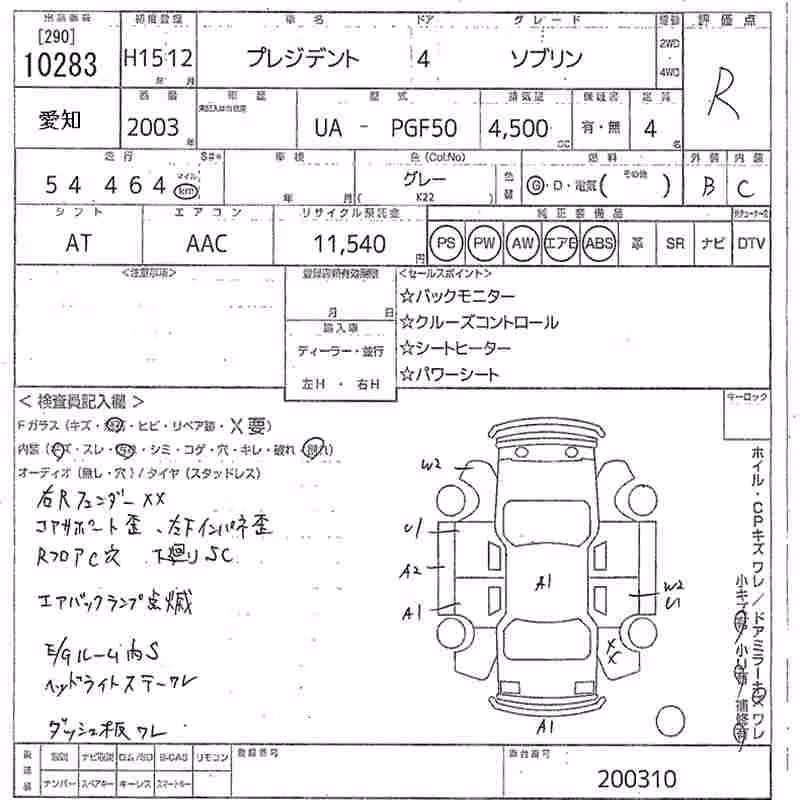 出品番号 初度登録 車名 ドア グレード 駆動 評価点
[290]
10283 H15 12 プレジデント 4 ソブリン 2WD 4WD R
年 月
愛知 2003 年 型式 排気量 保証書 定員
UA - PGF50 4,500 CC 有・無 4 名
走行 車検 色(Col.No) 燃料 外装 内装
54 464 マイル km 年 月 グレー K22 色替 G・D・電気( その他 ) B C
シフト エアコン リサイクル預託金 純正装備品
AT AAC 11,540 円 PS PW AW エアB ABS 革 SR ナビ DTV
<注意事項> <セールスポイント>
月 日
☆バックモニター
輸入車
☆クルーズコントロール
ディーラー・並行
☆シートヒーター
左H・右H
☆パワーシート
キーロック
<検査員記入欄>
Fガラス(キズ・飛石・ヒビ・リペア跡・X要)
内装(キズ・スレ・汚れ・シミ・コゲ・穴・キレ・破れ・割れ)
オーディオ(無し・穴)/タイヤ(スタッドレス)
右Rフェンダー XX
コアサポート歪、左Fインパネ歪
RフロアC穴 下廻りSC
エアバックランプ点滅
E/Gルーム内S
ヘッドライトステーワレ
ダッシュ板ワレ
W2
U1
A2
A1
A1
W2
U1
XX
A1
ホイル・CPキズワレ/ドアミラーキズワレ
小キズ有/小U有/補修有
取説 ナビ取説 ロム/SD B-CAS リモコン 登録番号 車台番号
ナンバー スペアキー キーレス スマートキー 200310